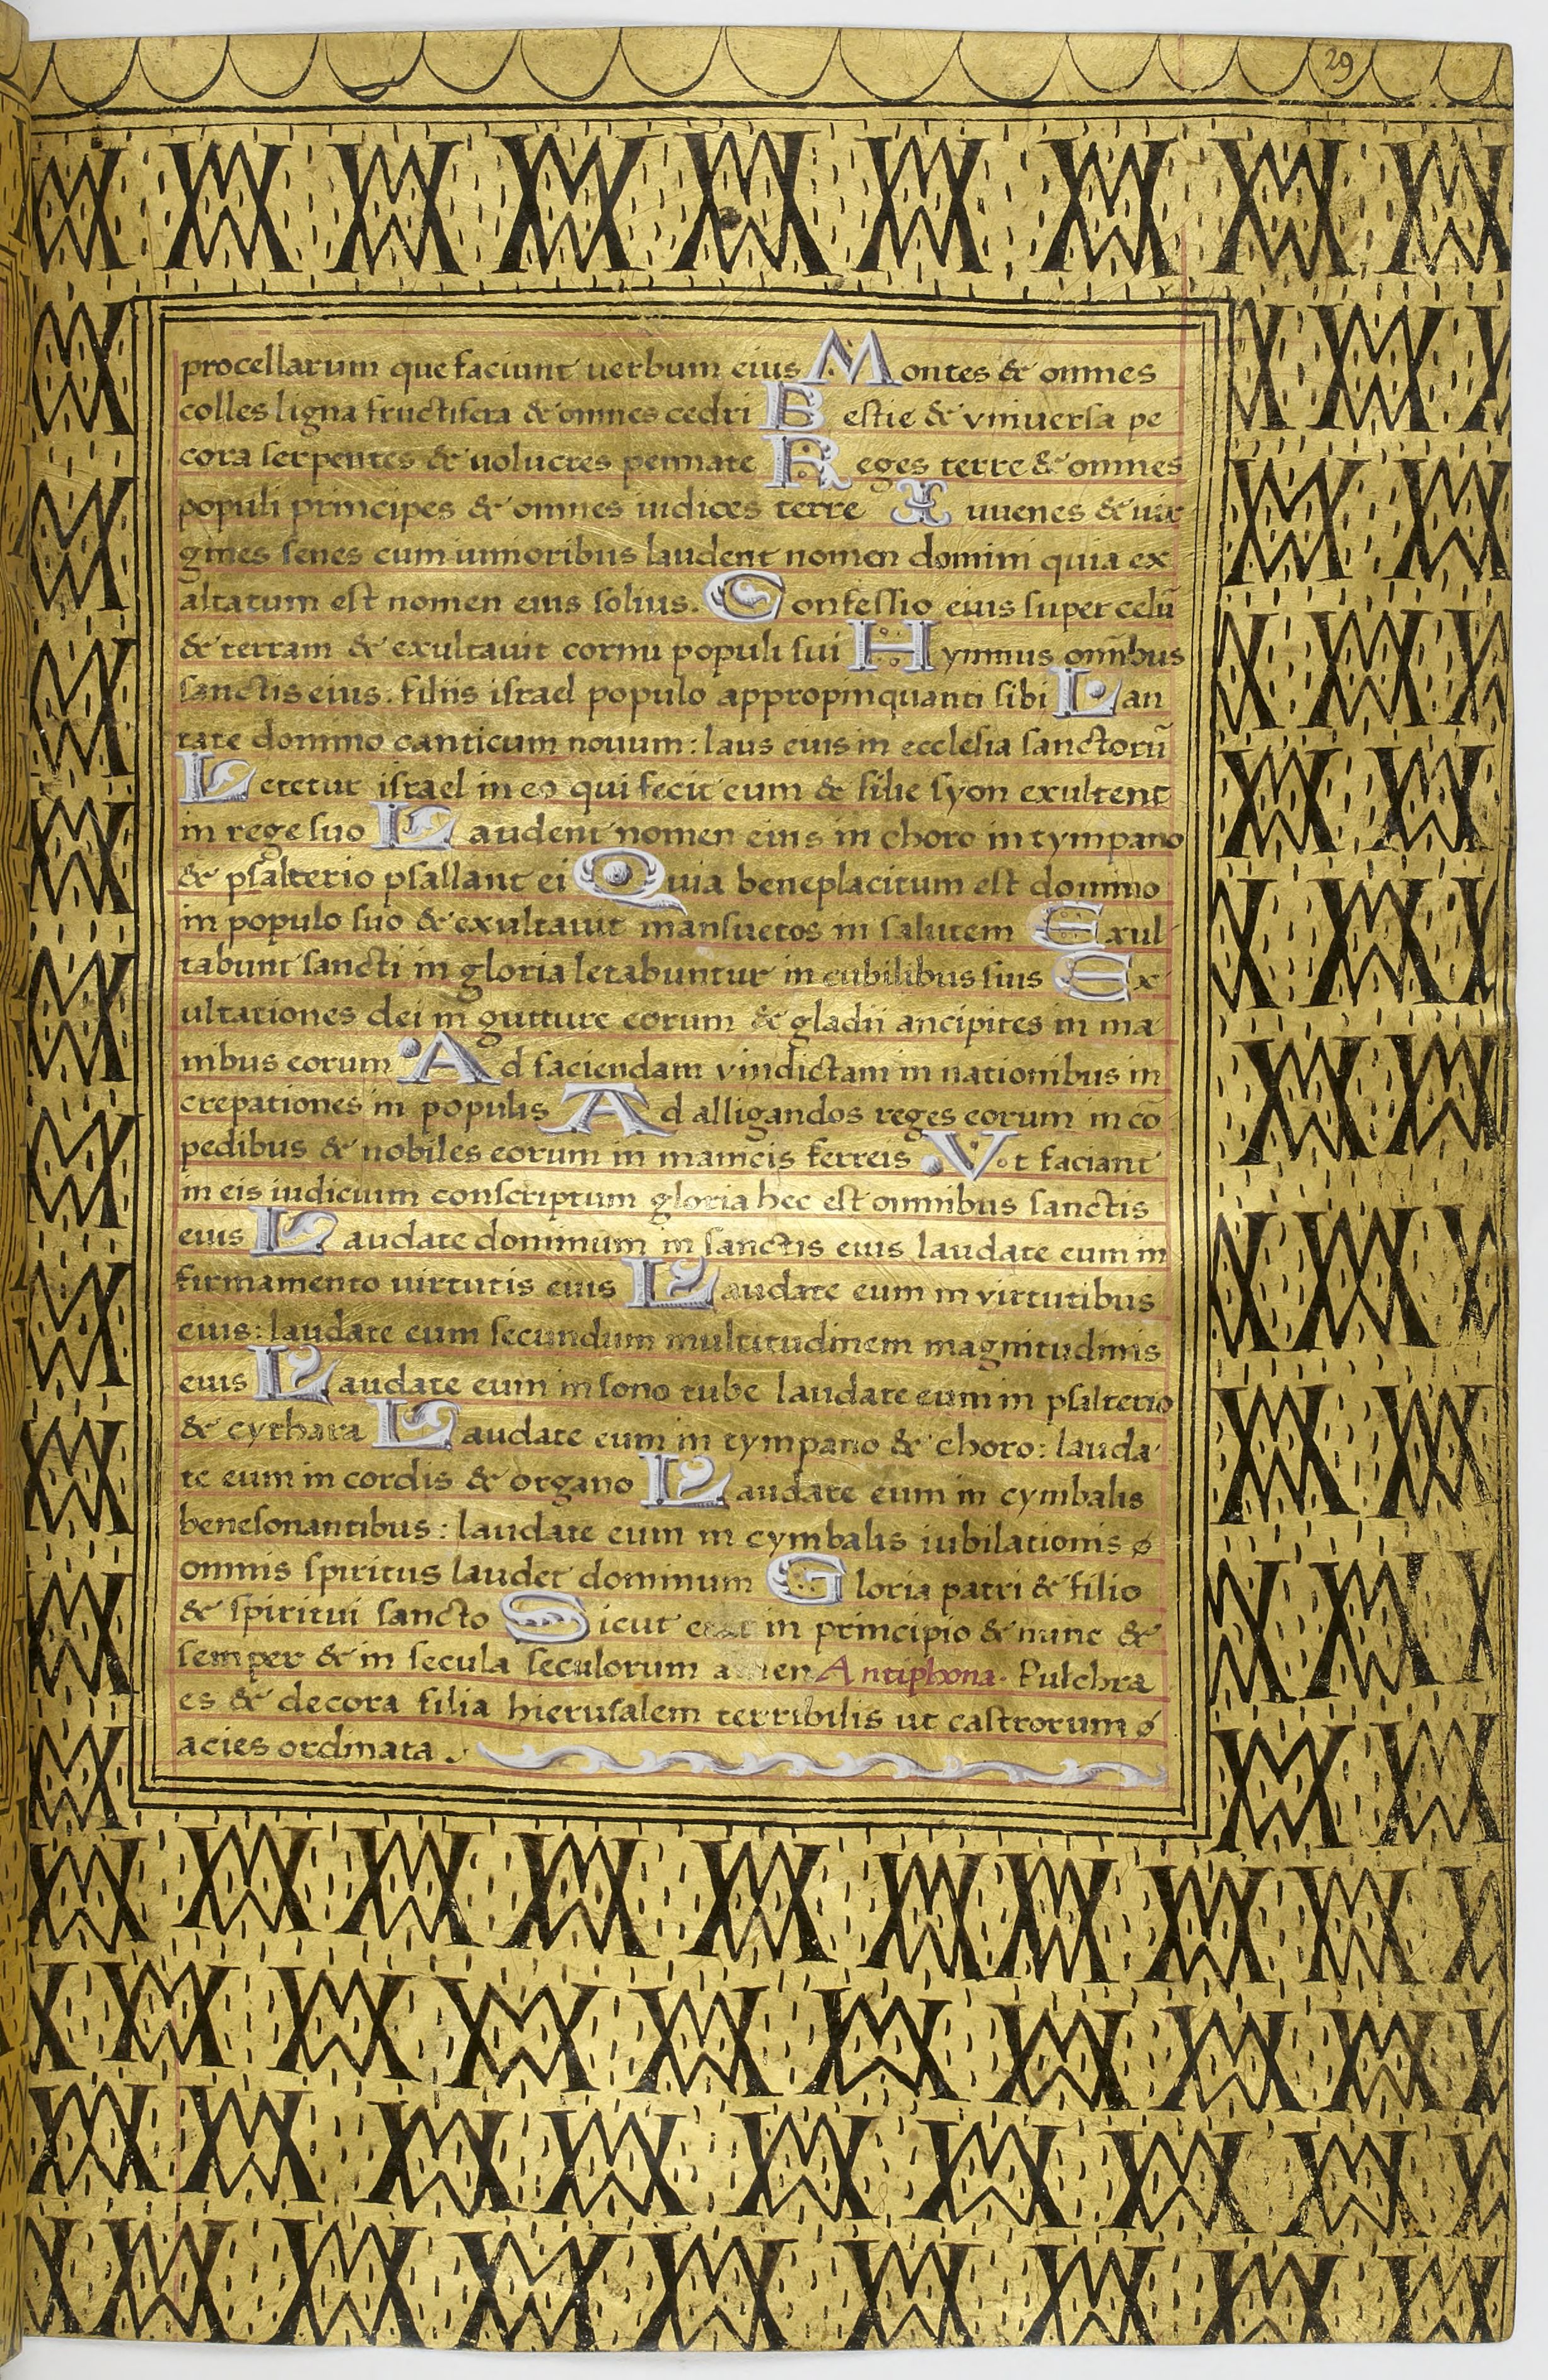 29
procellarum que faciunt uerbum eius Montes & omnes
colles ligna fructifera & omnes cedri Bestie & vniuersa pe
cora serpentes & uolucres pennate Reges terre & omnes
populi principes & omnes iudices terre Iuuenes & uir
gines senes cum iunioribus laudent nomen domini quia ex
altatum est nomen eius solius. Confessio eius super celū
& terram & exultauit cornu populi sui Hymnus om̄ibus
sanctis eius: filiis israel populo appropinquanti sibi Lau
tate domino canticum nouum: laus eius in ecclesia sanctorū
Letetur israel in eo qui fecit eum & filie syon exultent
in rege suo Laudent nomen eius in choro in tympano
& psalterio psallant ei Quia beneplacitum est domino
in populo suo & exultauit mansuetos in salutem Exul
tabunt sancti in gloria letabuntur in cubilibus suis Ex
ultationes dei in gutture eorum & gladii ancipites in ma
nibus eorum Ad faciendam vindictam in nationibus in
crepationes in populis Ad alligandos reges eorum in cō
pedibus & nobiles eorum in manicis ferreis Vt faciant
in eis iudicium conscriptum gloria hec est omnibus sanctis
eius Laudate dominum in sanctis eius laudate eum in
firmamento uirtutis eius Laudate eum in virtutibus
eius: laudate eum secundum multitudinem magnitudinis
eius Laudate eum in sono tube laudate eum in psalterio
& cythara Laudate eum in tympano & choro: lauda
te eum in cordis & organo Laudate eum in cymbalis
benesonantibus: laudate eum in cymbalis iubilationis
omnis spiritus laudet dominum Gloria patri & filio
& spiritui sancto Sicut erat in principio & nunc &
semper & in secula seculorum amen Antiphona. Pulchra
es & decora filia hierusalem terribilis ut castrorum
acies ordinata